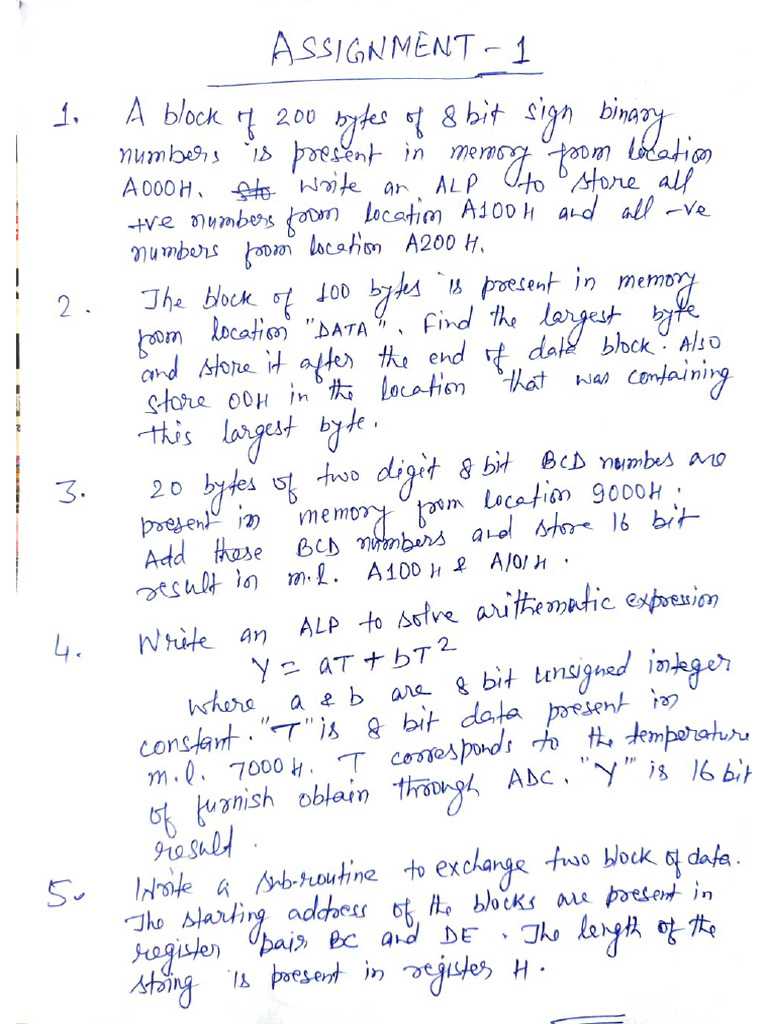 ASSIGNMENT - 1
1. A block of 200 bytes of 8 bit sign binary
numbers is present in memory from location
A000H. Write an ALP to store all
+ve numbers from location A100H and all -ve
numbers from location A200H.
2. The block of 100 bytes is present in memory
from location "DATA". Find the largest byte
and store it after the end of data block. Also
store 00H in the location that was containing
this largest byte.
3. 20 bytes of two digit 8 bit BCD numbes are
present in memory from location 9000H.
Add these BCD numbers and store 16 bit
result in m.l. A100H & A101H.
4. Write an ALP to solve arithematic expression
Y = aT + bT²
where a & b are 8 bit unsigned integer
constant. "T" is 8 bit data present in
m.l. 7000H. T corresponds to the temperature
of furnish obtain through ADC. "Y" is 16 bit
result.
5. Write a sub-routine to exchange two block of data.
The starting address of the blocks are present in
register pair BC and DE. The length of the
string is present in register H.